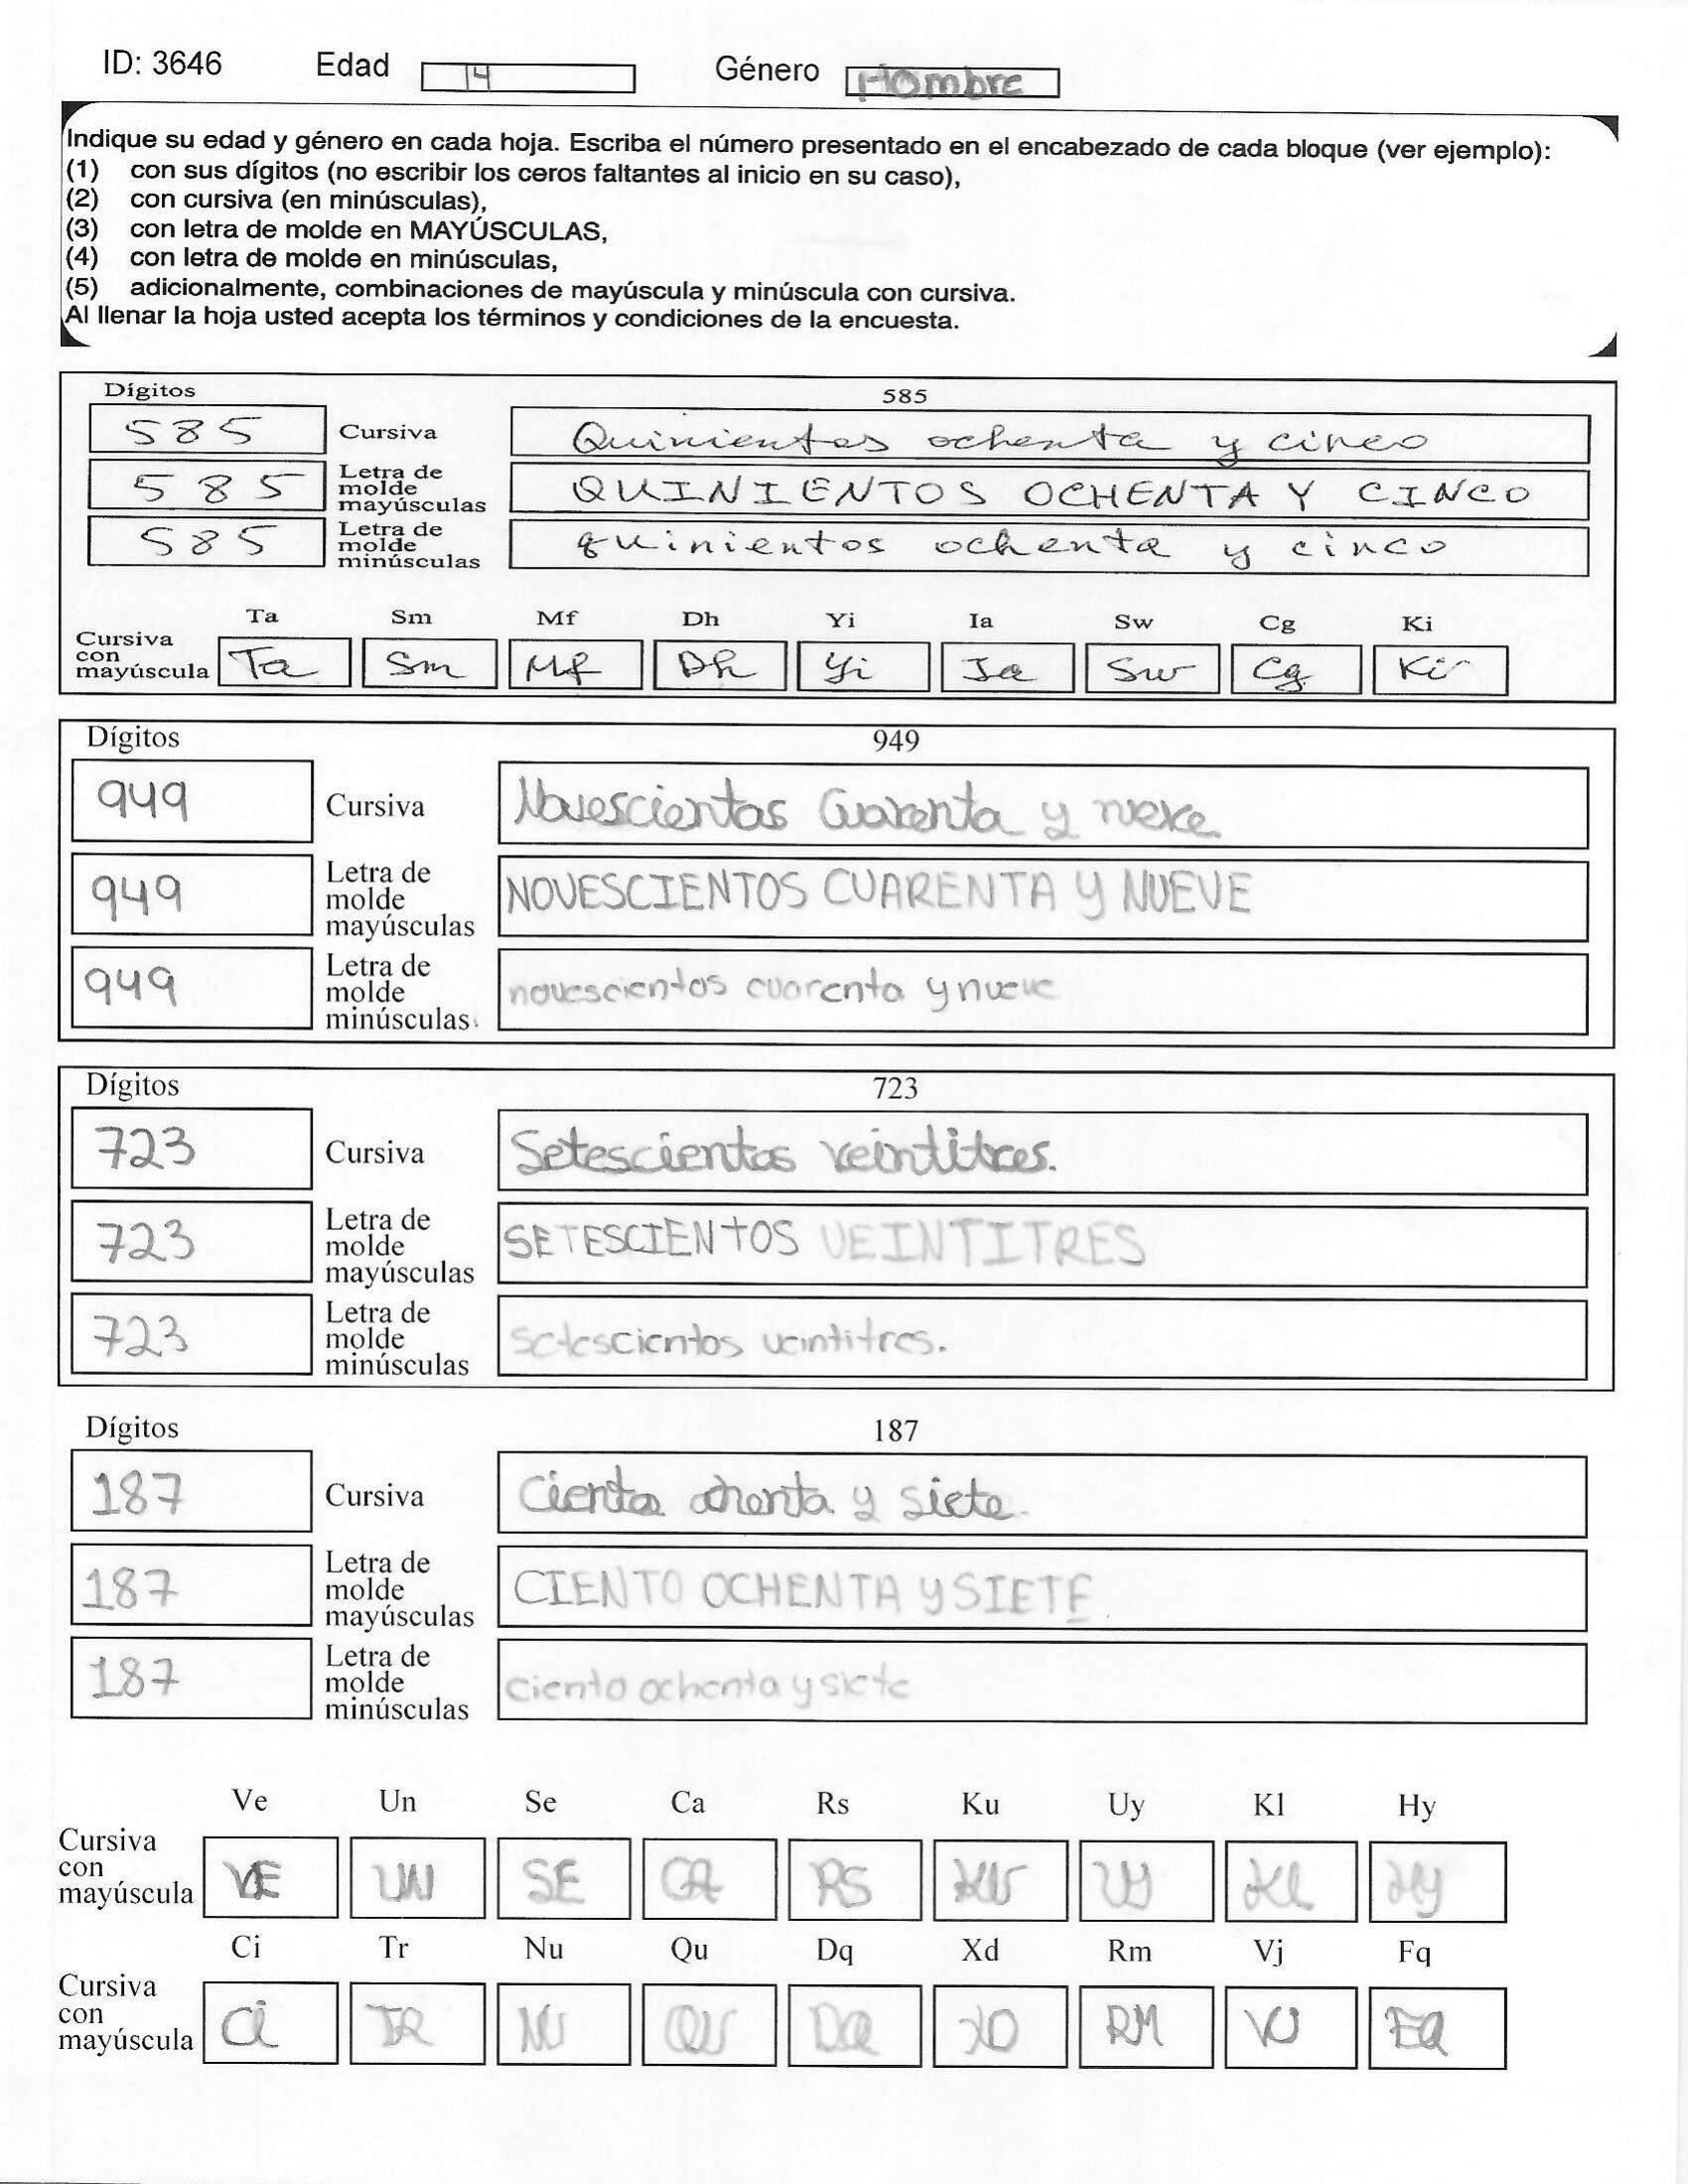 ID: 3646 Edad 14 Género Hombre
Indique su edad y género en cada hoja. Escriba el número presentado en el encabezado de cada bloque (ver ejemplo):
(1) con sus dígitos (no escribir los ceros faltantes al inicio en su caso),
(2) con cursiva (en minúsculas),
(3) con letra de molde en MAYÚSCULAS,
(4) con letra de molde en minúsculas,
(5) adicionalmente, combinaciones de mayúscula y minúscula con cursiva.
Al llenar la hoja usted acepta los términos y condiciones de la encuesta.
Dígitos 585
585 Cursiva Quinientos ochenta y cinco
585 Letra de molde mayúsculas QUINIENTOS OCHENTA Y CINCO
585 Letra de molde minúsculas quinientos ochenta y cinco
Ta Sm Mf Dh Yi Ia Sw Cg Ki
Cursiva con mayúscula Ta Sm Mf Dh Yi Ia Sw Cg Ki
Dígitos 949
949 Cursiva Novescientos Cuarenta y nueve.
949 Letra de molde mayúsculas NOVESCIENTOS CUARENTA Y NUEVE
949 Letra de molde minúsculas novescientos cuarenta y nueve
Dígitos 723
723 Cursiva Setescientos veintitres.
723 Letra de molde mayúsculas SETESCIENTOS VEINTITRES
723 Letra de molde minúsculas setescientos veintitres.
Dígitos 187
187 Cursiva Ciento ochenta y siete.
187 Letra de molde mayúsculas CIENTO OCHENTA Y SIETE
187 Letra de molde minúsculas ciento ochenta y siete
Ve Un Se Ca Rs Ku Uy Kl Hy
Cursiva con mayúscula VE UN SE CA RS KU UY Kl Hy
Ci Tr Nu Qu Dq Xd Rm Vj Fq
Cursiva con mayúscula Ci TR NU QU DQ XD RM VJ FQ